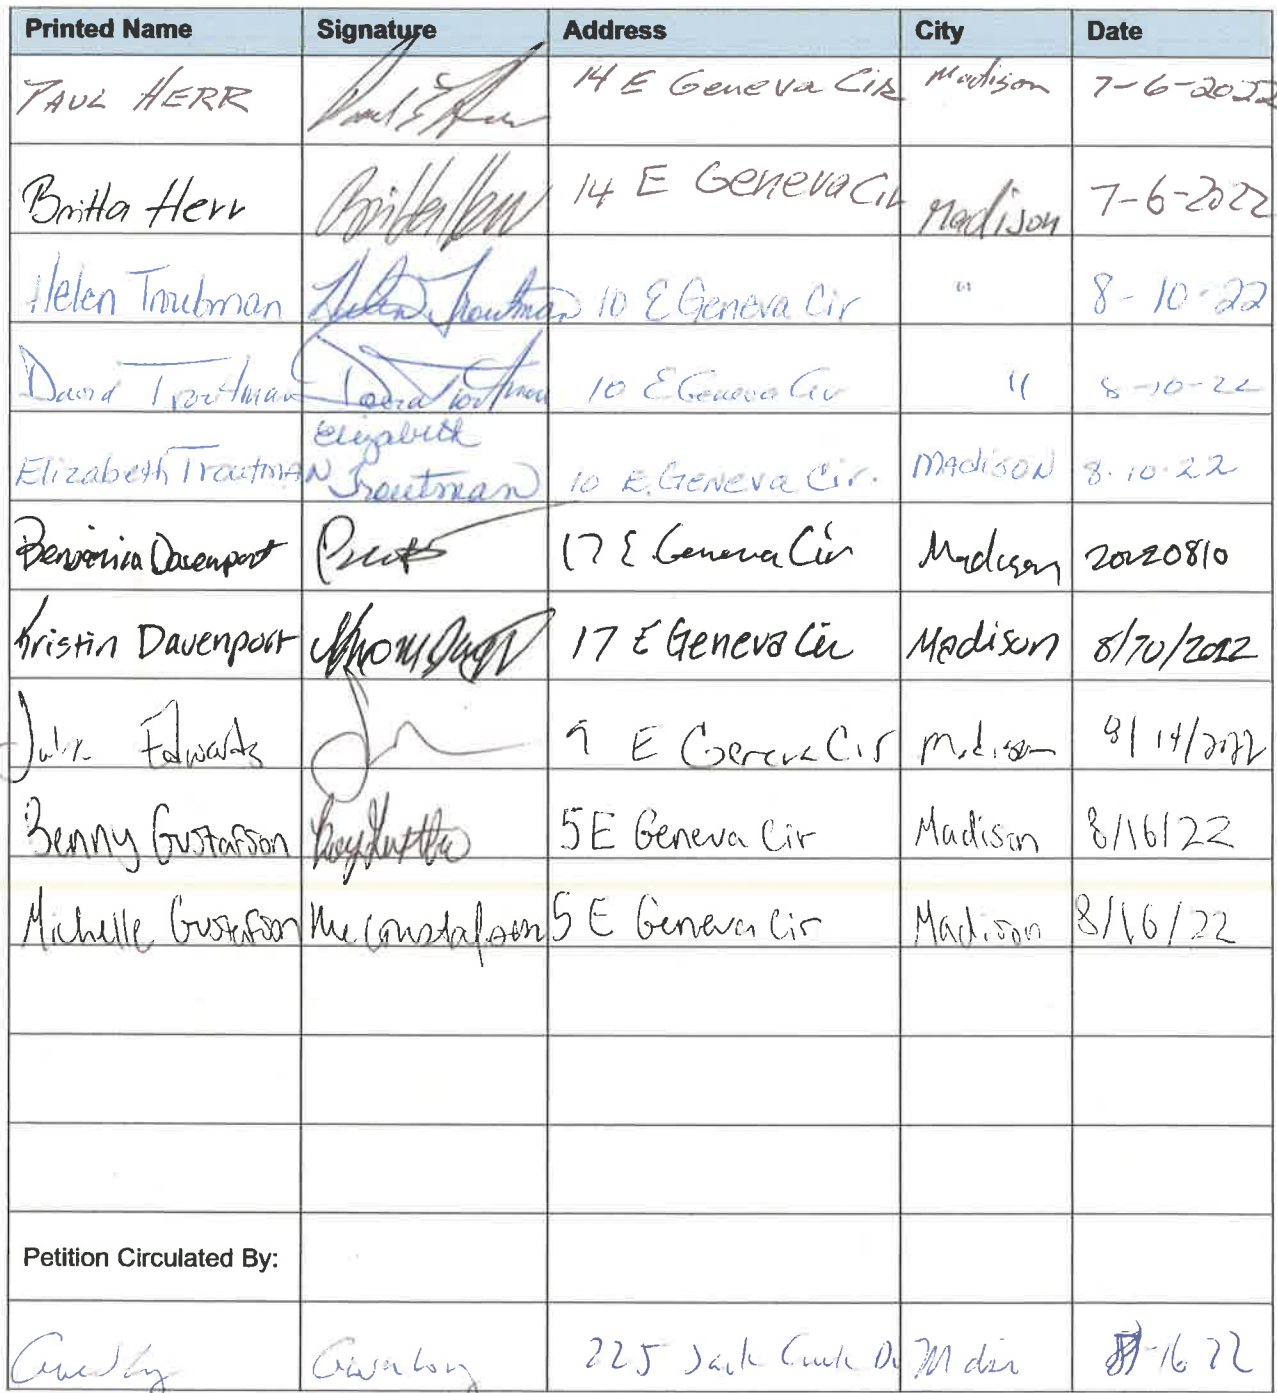 Printed Name Signature Address City Date
PAUL HERR Paul E Herr 14 E Geneva Cir Madison 7-6-2022
Britta Herr Britta Herr 14 E Geneva Cir Madison 7-6-2022
Helen Troutman Helen Troutman 10 E Geneva Cir " 8-10-22
David Troutman David Troutman 10 E Geneva Cir " 8-10-22
Elizabeth Troutman Elizabeth Troutman 10 E. Geneva Cir. Madison 8-10-22
Davenport 17 E Geneva Cir Madison 20220810
Kristin Davenport 17 E Geneva Cir Madison 8/10/2022
Edwards 9 E Geneva Cir Madison 8/14/2022
Benny Gustafson 5 E Geneva Cir Madison 8/16/22
Michelle Gustafson Gustafson 5 E Geneva Cir Madison 8/16/22
Petition Circulated By:
225 Jack 16 22